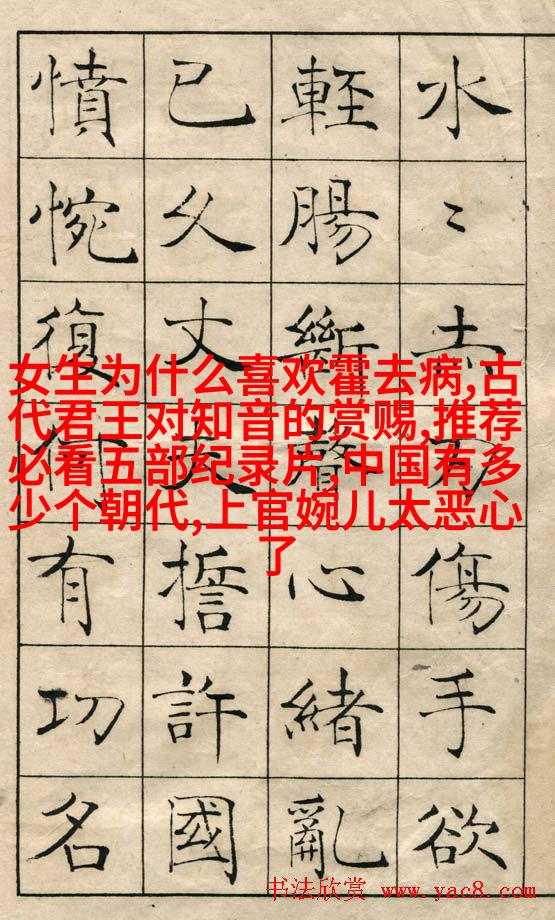 水〻赤刃傷手欲
輕腸斷聲心緒亂
已久丈夫誓許國
憤惋復何有功名
女生为什么喜欢霍去病,古
代君王对知音的赏赐,推荐
必看五部纪录片,中国有多
少个朝代,上官婉儿太恶心
了
书法欣赏 www.yac8.com